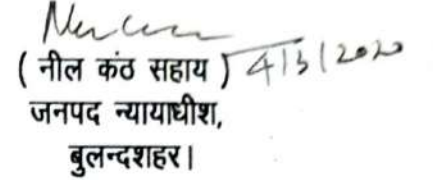 ( नील कंठ सहाय ) 4/3/2020
जनपद न्यायाधीश,
बुलन्दशहर।